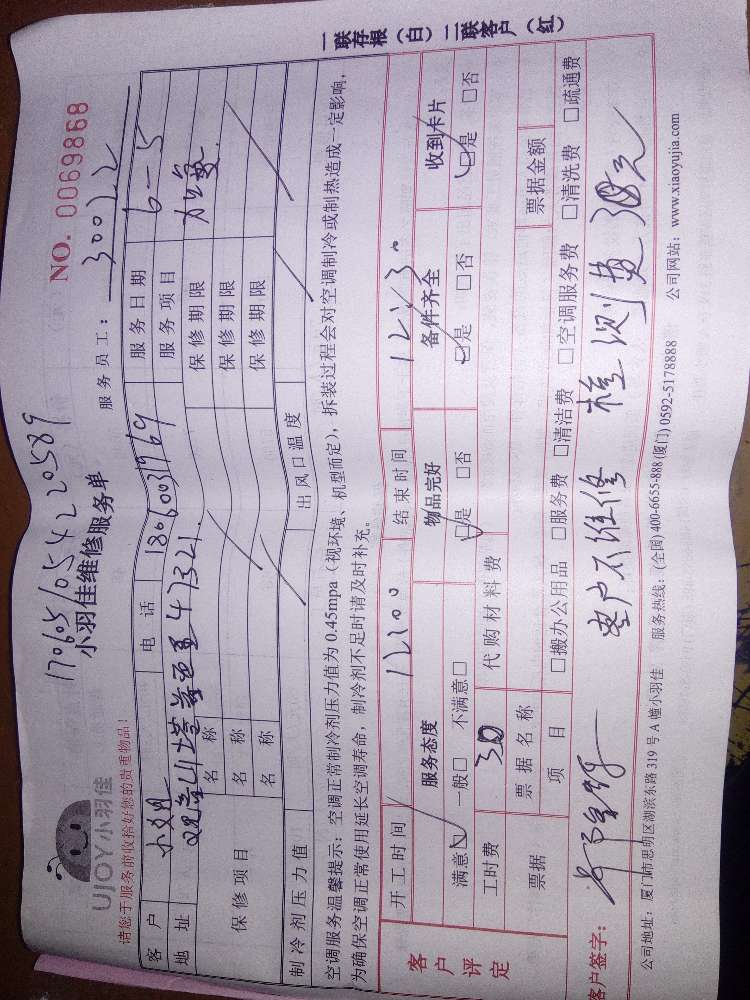 一联存根（白）二联客户（红）
NO. 0069868
170605105422 0589
UJOY小羽佳
小羽佳维修服务单
服务员工： 30022
请您于服务前收拾好您的贵重物品！
客户 电话 18060031969 服务日期 6-5
地址 服务项目
保修项目 名称 保修期限
名称 保修期限
名称 保修期限
制冷剂压力值 出风口温度
空调服务温馨提示：空调正常制冷剂压力值为 0.45mpa（视环境、机型而定），拆装过程会对空调制冷或制热造成一定影响，
为确保空调正常使用延长空调寿命，制冷剂不足时请及时补充。
客户评定
开工时间 12:00 结束时间 12:30
服务态度 物品完好 备件齐全 收到卡片
满意□ 一般□ 不满意□ □是 □否 □是 □否 □是 □否
工时费 30 代购材料费
票据 票据名称 票据金额
项目 □搬办公用品 □服务费 □清洁费 □空调服务费 □清洗费 □疏通费
客户签字： 客户不维修 检测费30元
公司地址：厦门市思明区湖滨东路 319 号 A 幢小羽佳 服务热线：(全国) 400-6655-888 (厦门) 0592-5178888 公司网站：www.xiaoyujia.com